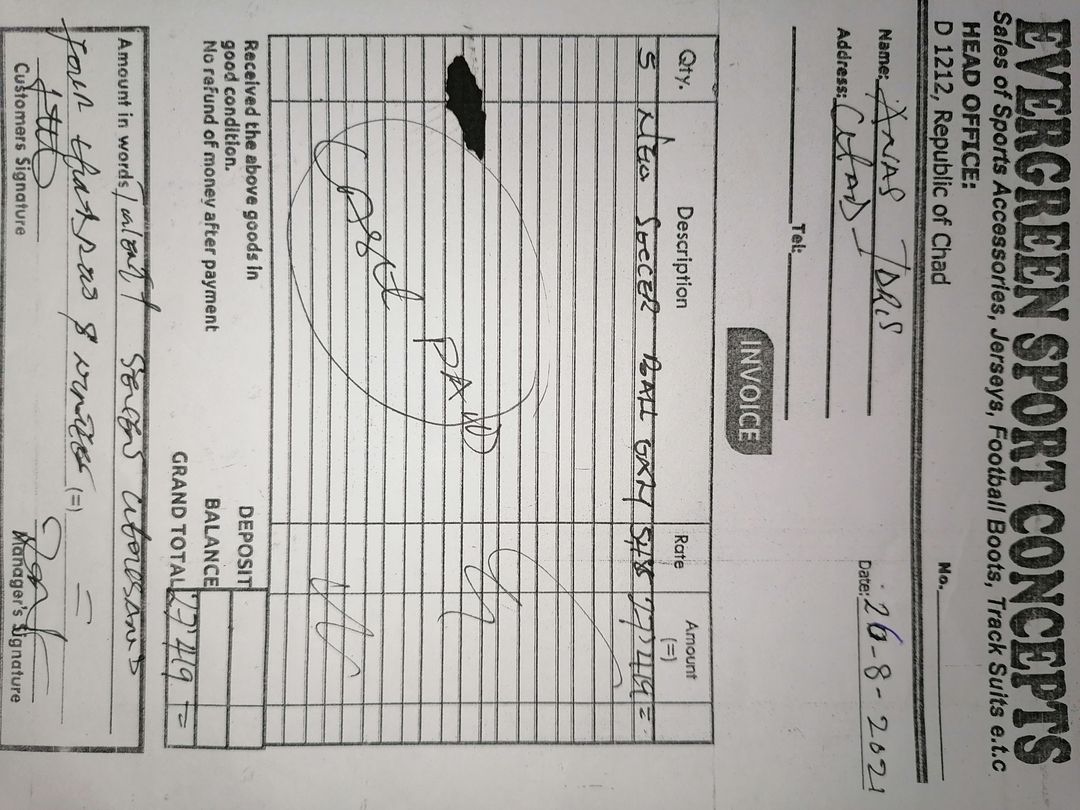 EVERGREEN SPORT CONCEPTS
Sales of Sports Accessories, Jerseys, Football Boots, Track Suits e.t.c
HEAD OFFICE:
D 1212, Republic of Chad
No.
Name: ANAS IDRIS
Date: 26-8-2021
Address: CHAD
Tel:
INVOICE
Qty. Description Rate Amount (=)
5 NEO SOCCER BALL 27,419 =
PAID
Received the above goods in
good condition.
No refund of money after payment
DEPOSIT
BALANCE
GRAND TOTAL 27,419 =
Amount in words
Four
(=)
Customers Signature
Manager's Signature